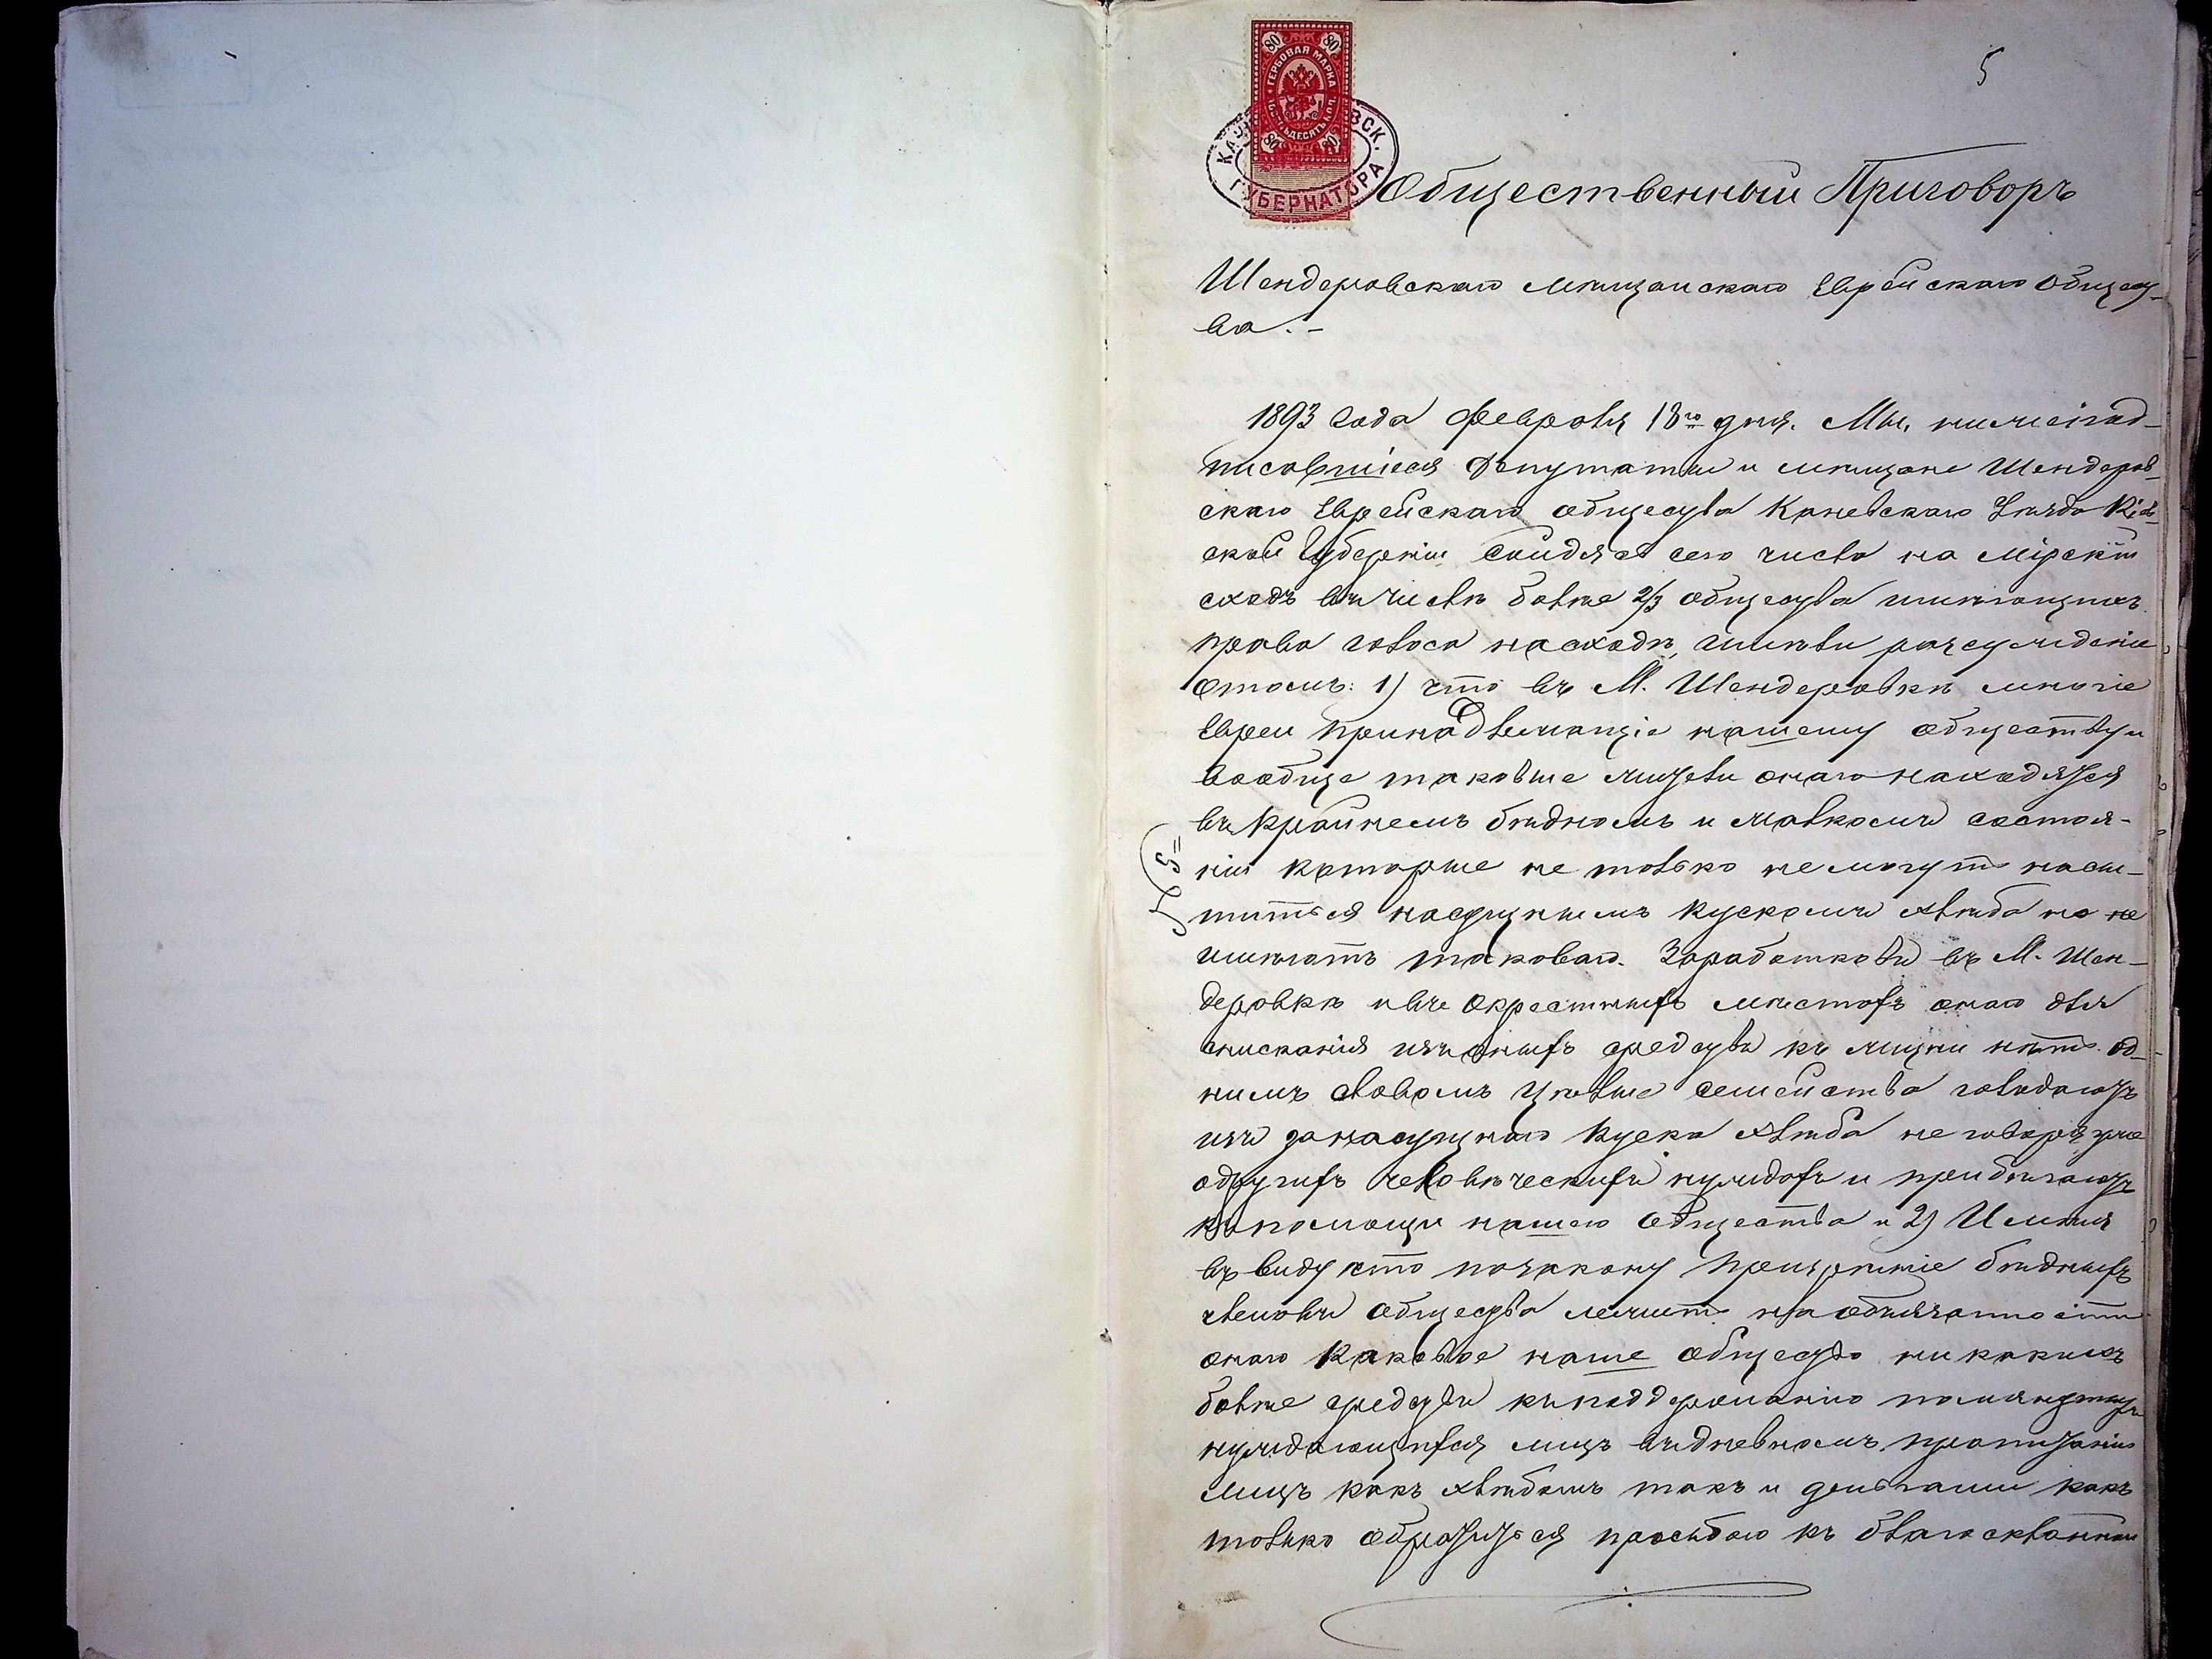 5
80 80
ГЕРБОВАЯ МАРКА
ВОСЕМЬДЕСЯТЪ КОП.
80 80
ВСК.
ГУБЕРНАТОРА
Общественный Приговоръ
Шендеровскаго мѣщанскаго Еврейскаго общест-
ва.-
1893 года Февраля 18го дня. Мы, нижепод-
писавшіеся депутаты и мѣщане Шендеров-
скаго Еврейскаго общества Каневскаго Уѣзда Кіев-
ской Губерніи сойдясь сего числа на мірскій
сходъ въ числѣ болѣе 2/3 общества имѣющихъ
право голоса на сходѣ, имѣли разсужденіе
о томъ: 1) что въ М. Шендеровкѣ многіе
Евреи принадлежащіе нашему обществу и
вообще таковые жители онаго находятся
въ крайнемъ бѣдномъ и жалкомъ состоя-
ніи которые не только не могутъ насы-
титься насущнымъ кускомъ хлѣба но не
имѣютъ таковаго. Заработковъ въ М. Шен-
деровкѣ и въ окрестныхъ мѣстахъ онаго для
снисканія средствъ къ жизни нѣтъ. Од-
нимъ словомъ цѣлые семейства голодаютъ
изъ за насущнаго куска хлѣба не говоря уже
о другихъ человѣческихъ нуждахъ и прибѣгаютъ
къ помощи нашего общества и 2) Имѣя
въ виду что по закону призрѣніе бѣдныхъ
членовъ общества лежитъ на обязанности
онаго каковое наше общество никакихъ
болѣе средствъ къ поддержанію помянутыхъ
нуждающихся лицъ въ дневномъ пропитаніи
лицъ какъ хлѣбомъ такъ и деньгами какъ
только обратиться просьбою къ благосклонной